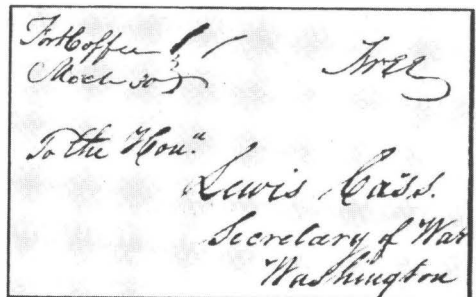 Fort Coffee
March 30
Free
To the Hon.
Lewis Cass.
Secretary of War
Washington